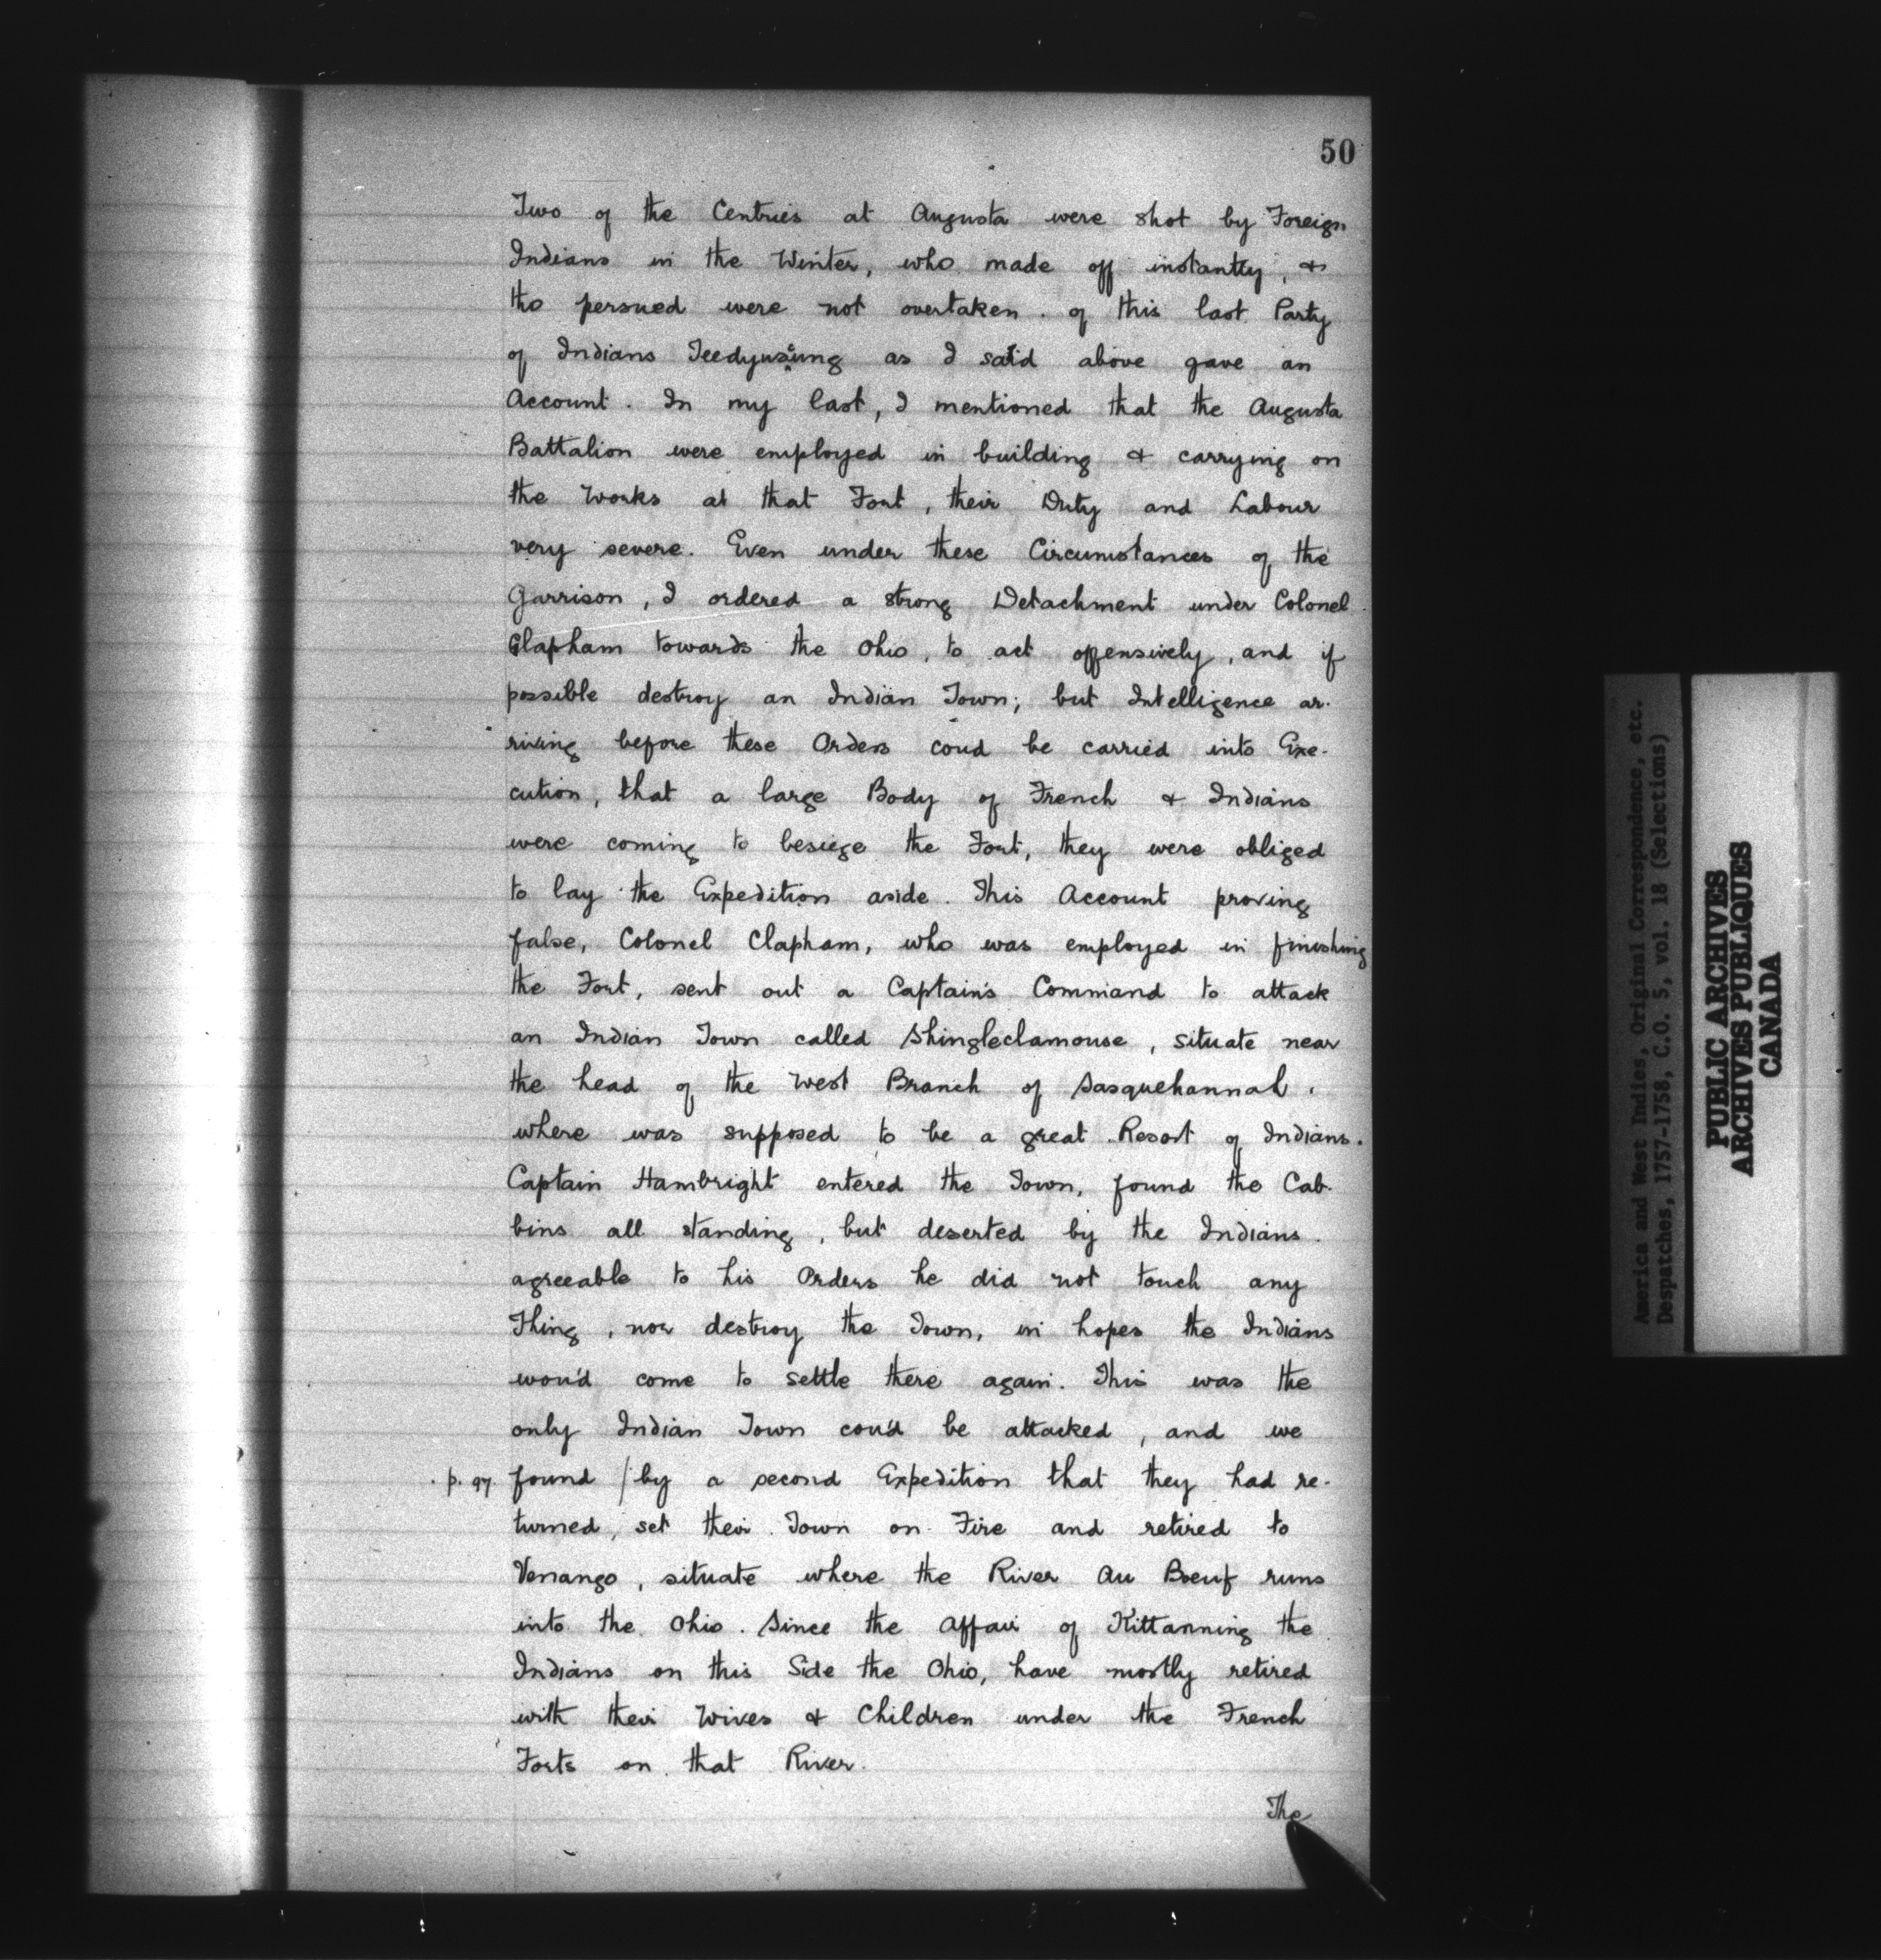 50
Two of the Centries at Augusta were shot by Foreign
Indians in the Winter, who made off instantly, &
tho persued were not overtaken. of this last Party
of Indians Teedyusung as I said above gave an
Account. In my last, I mentioned that the Augusta
Battalion were employed in building & carrying on
the Works at that Fort, their Duty and Labour
very severe. Even under these Circumstances of the
Garrison, I ordered a strong Detachment under Colonel
Clapham towards the Ohio, to act offensively, and if
possible destroy an Indian Town; but Intelligence ar-
riving before these Orders coud be carried into Exe-
cution, that a large Body of French & Indians
were coming to besiege the Fort, they were obliged
to lay the Expedition aside. This Account proving
false, Colonel Clapham, who was employed in finishing
the Fort, sent out a Captain's Command to attack
an Indian Town called Shingleclamouse, situate near
the head of the West Branch of Sasquehannah.
where was supposed to be a great Resort of Indians.
Captain Hambright entered the Town, found the Cab-
bins all standing, but deserted by the Indians.
agreeable to his Orders he did not touch any
Thing, nor destroy the Town, in hopes the Indians
wou'd come to settle there again. This was the
only Indian Town cou'd be attacked, and we
p. 97 found / by a second Expedition that they had re-
turned, set their Town on Fire and retired to
Venango, situate where the River au Boeuf runs
into the Ohio. Since the Affair of Kittanning the
Indians on this Side the Ohio, have mostly retired
with their Wives & Children under the French
Forts on that River.
The
America and West Indies, Original Correspondence, etc.
Despatches, 1757-1758, C.O. 5, vol. 18 (Selections)
PUBLIC ARCHIVES
ARCHIVES PUBLIQUES
CANADA